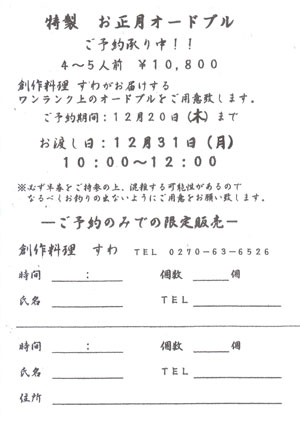 特製　お正月オードブル
ご予約承り中！！
４～５人前　￥１０,８００
創作料理　すわがお届けする
ワンランク上のオードブルをご用意致します。
ご予約期間：１２月２０日（木）まで
お渡し日：１２月３１日（月）
１０：００～１２：００
※必ず半券をご持参の上、混雑する可能性があるので
なるべくお釣りの出ないようにご用意をお願い致します。
―ご予約のみでの限定販売―
創作料理　すわ　ＴＥＬ　０２７０－６３－６５２６
時間　：　個数　個
氏名　ＴＥＬ
時間　：　個数　個
氏名　ＴＥＬ
住所